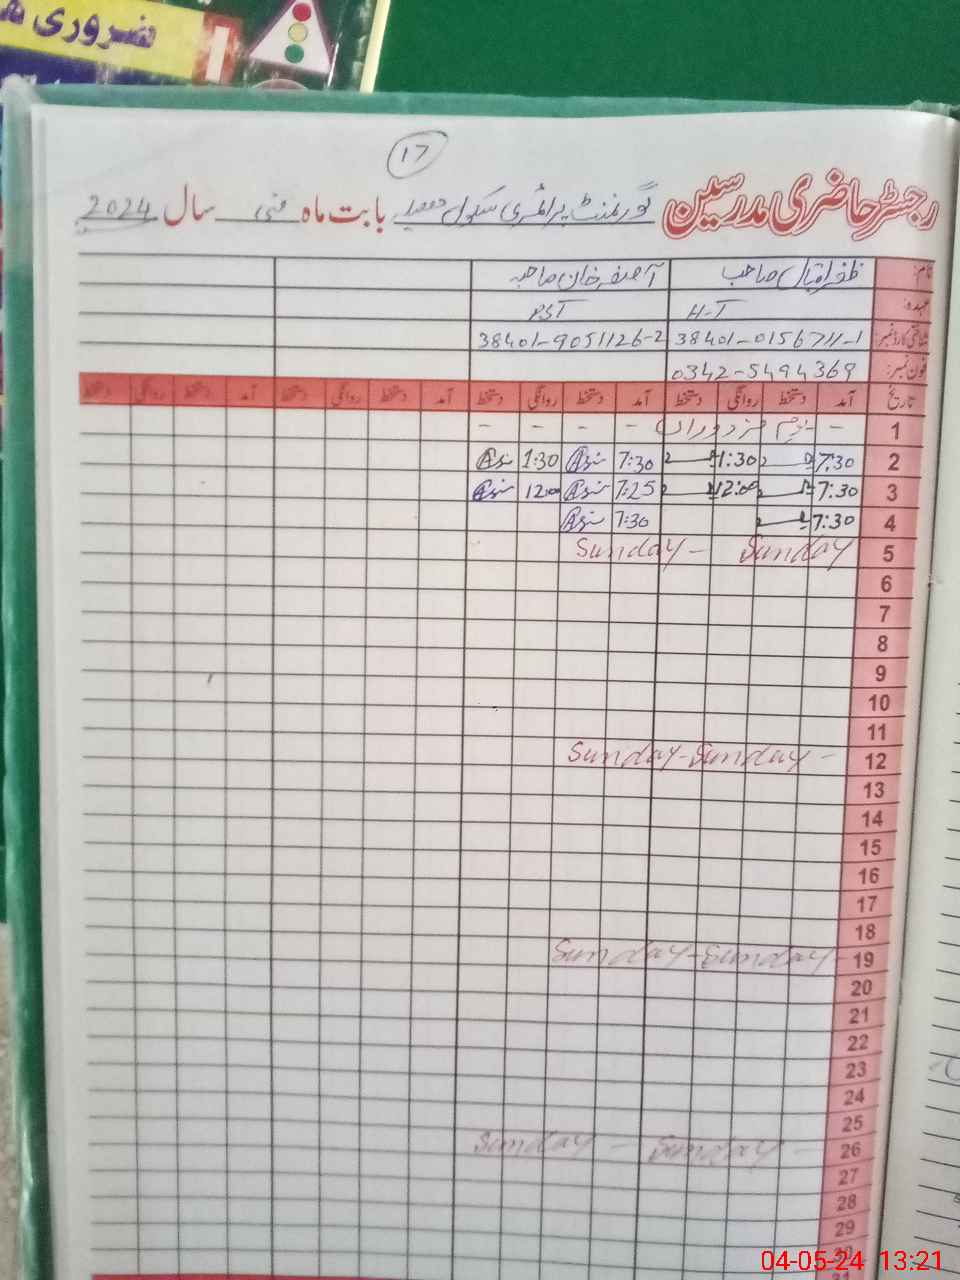 ضروری
17
رجسٹر حاضری مدرسین گورنمنٹ پرائمری سکول بابت ماہ مئی سال 2024
نام: ظفر اقبال صاحب آصف خان صاحب
عہدہ: H-T PST
شناختی کارڈ نمبر: 38401-0156711-1 38401-9051126-2
فون نمبر: 0342-5494369
تاریخ آمد دستخط روانگی دستخط آمد دستخط روانگی دستخط آمد دستخط روانگی دستخط آمد دستخط روانگی دستخط
1 - یوم مزدوراں - - - -
2 7:30 1:30 7:30 1:30
3 7:30 12:00 7:25 12:00
4 7:30 7:30
5 Sunday Sunday -
6
7
8
9
10
11
12 - Sunday - Sunday
13
14
15
16
17
18
19 - Sunday - Sunday
20
21
22
23
24
25
26 - Sunday - Sunday
27
28
29
30
04-05-24 13:21